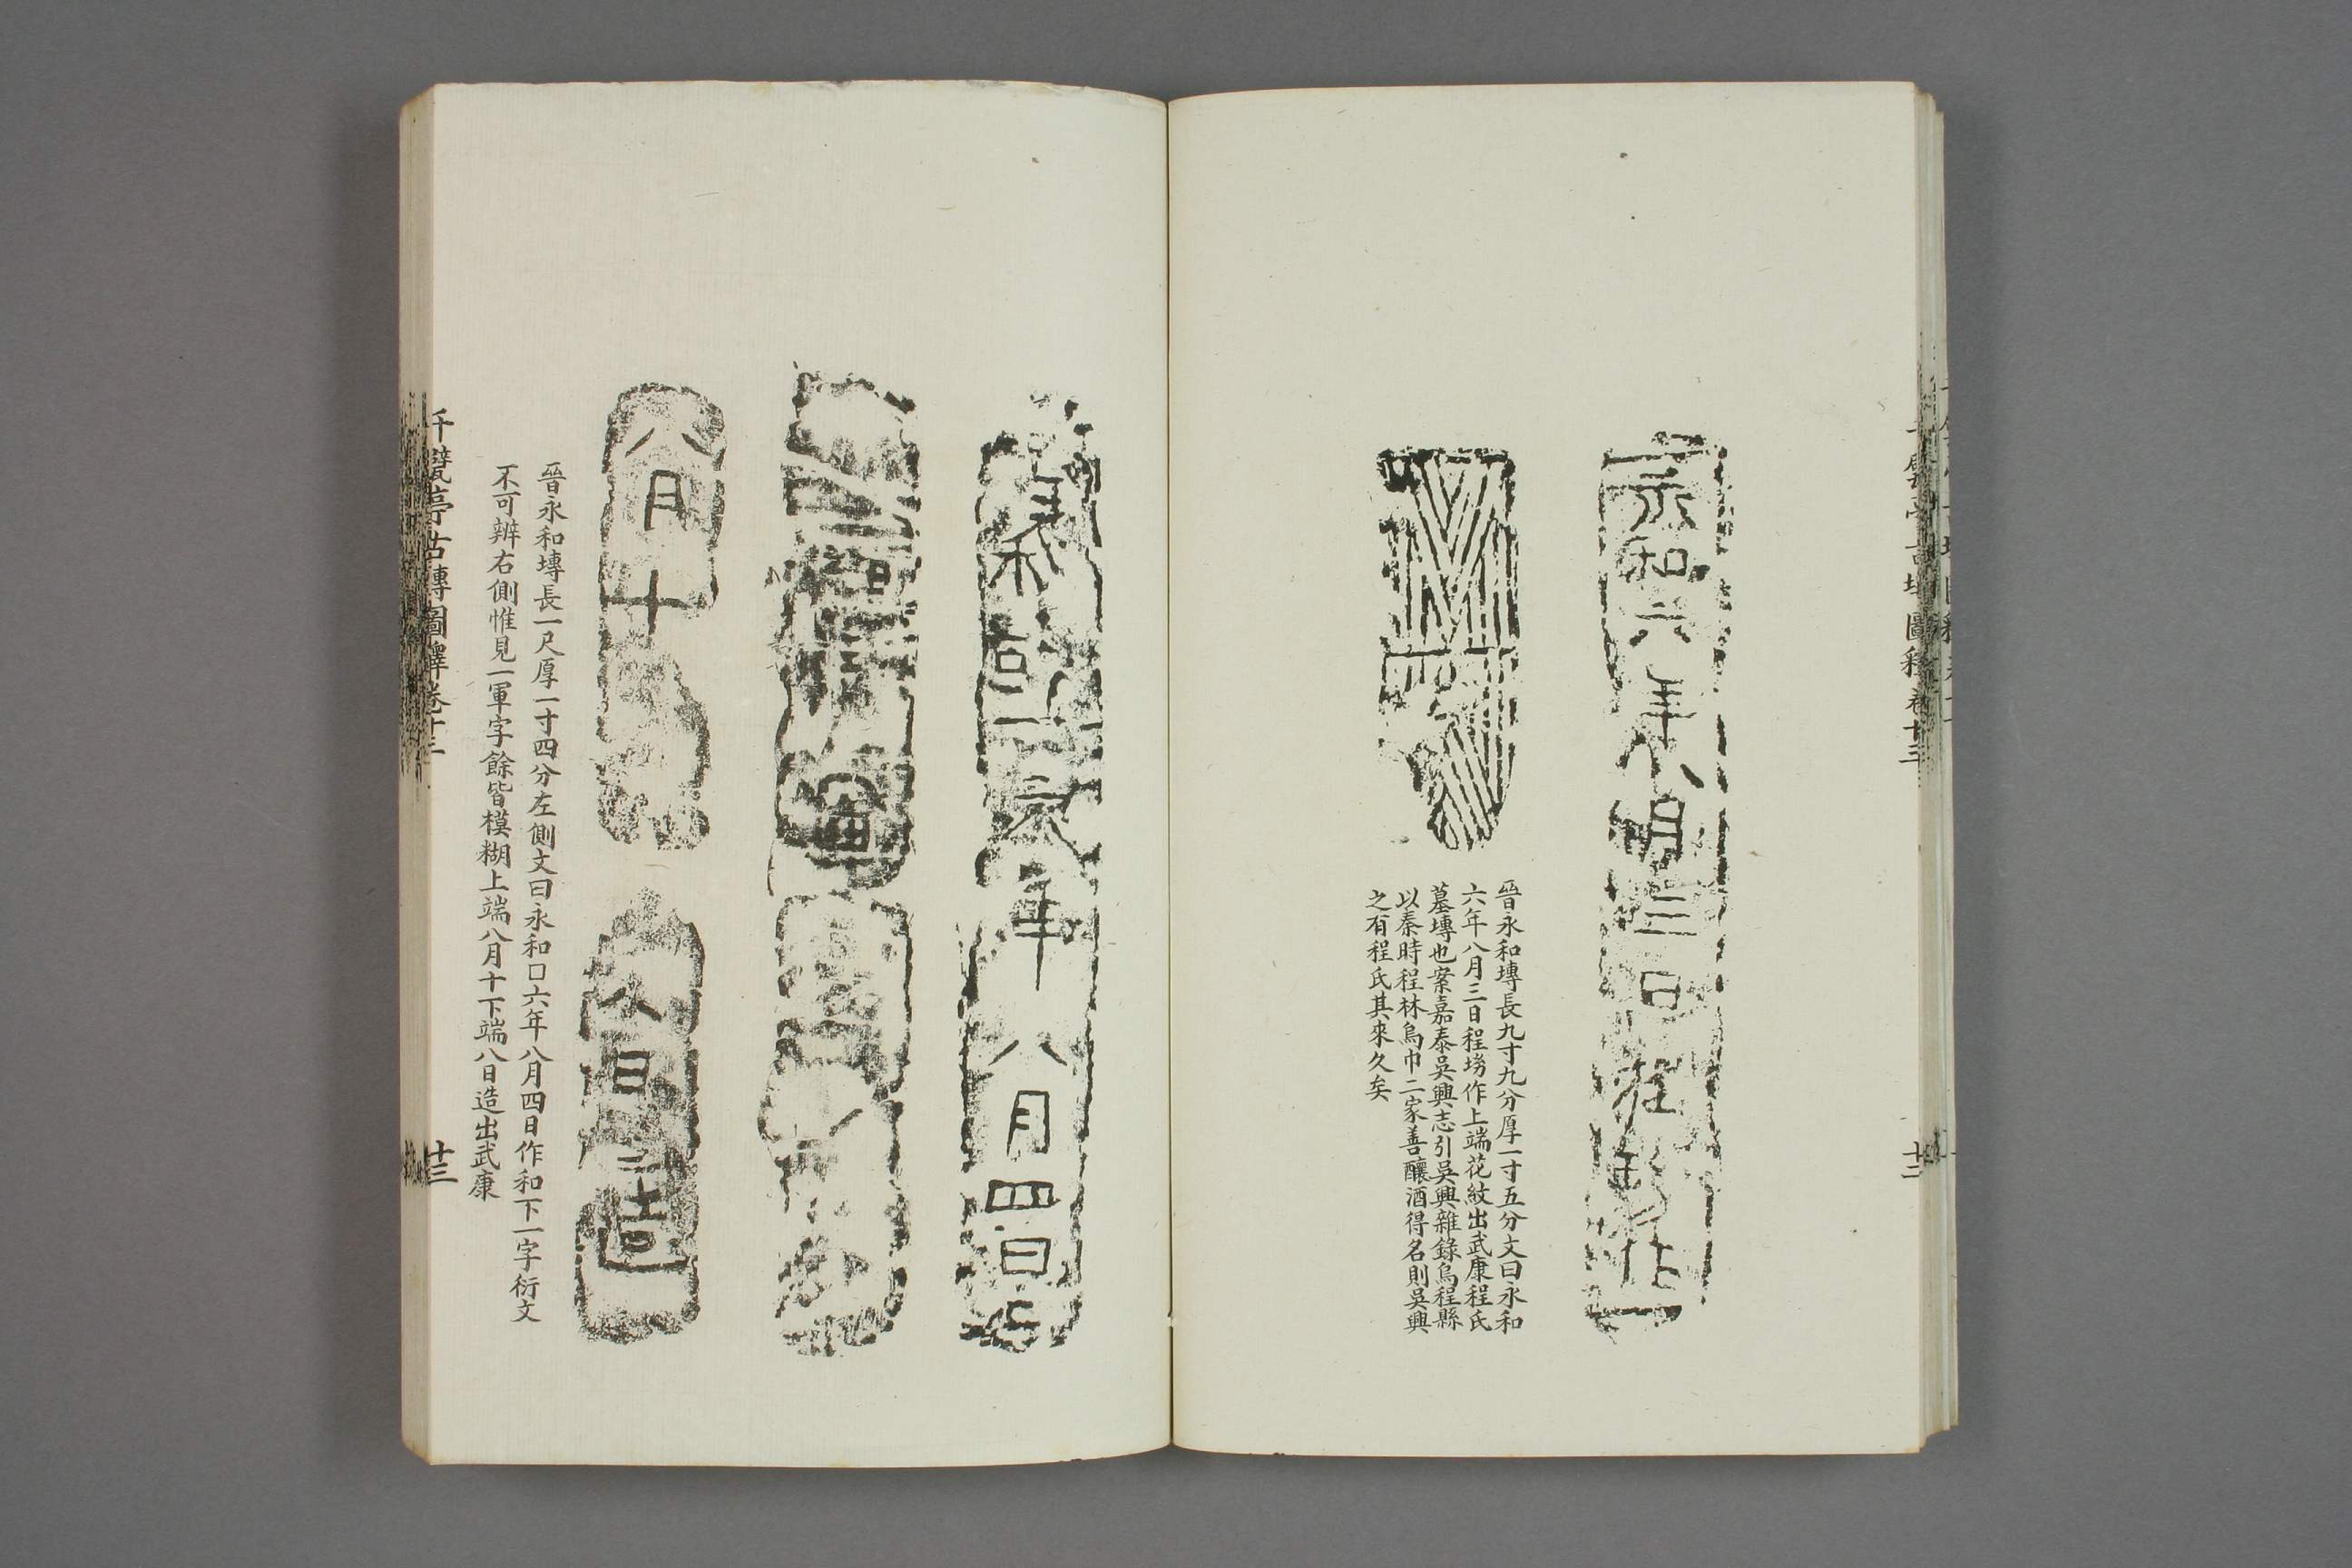 永和六年八月三日程㙃作
晉永和塼長九寸九分厚一寸五分文曰永和
六年八月三日程㙃作上端花紋出武康程氏
墓塼也案嘉泰吳興志引吳興雜錄烏程縣
以秦時程林烏巾二家善釀酒得名則吳興
之有程氏其來久矣
和
年八月四日
八月十
八日造
晉永和塼長一尺厚一寸四分左側文曰永和口六年八月四日作和下一字衍文
不可辨右側惟見一軍字餘皆模糊上端八月十下端八日造出武康
千甓亭古塼圖釋卷十三
十三